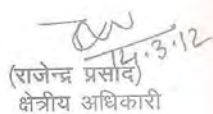 14.3.12
(राजेन्द्र प्रसाद)
क्षेत्रीय अधिकारी